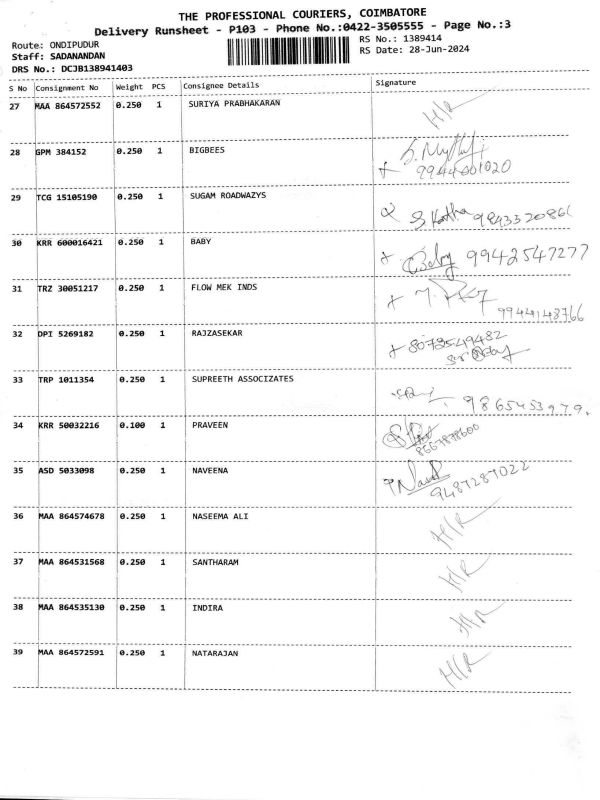 THE PROFESSIONAL COURIERS, COIMBATORE
Delivery Runsheet - P103 - Phone No.:0422-3505555 - Page No.:3
Route: ONDIPUDUR
RS No.: 1389414
Staff: SADANANDAN
RS Date: 28-Jun-2024
DRS No.: DCJB138941403
S No Consignment No Weight PCS Consignee Details Signature
27 MAA 864572552 0.250 1 SURIYA PRABHAKARAN H/R
28 GPM 384152 0.250 1 BIGBEES
9944601020
29 TCG 15105190 0.250 1 SUGAM ROADWAZYS
9843320861
30 KRR 600016421 0.250 1 BABY Baby 9942547277
31 TRZ 30051217 0.250 1 FLOW MEK INDS
9944148766
32 DPI 5269182 0.250 1 RAJZASEKAR 8073549482
33 TRP 1011354 0.250 1 SUPREETH ASSOCIZATES
9865453979.
34 KRR 50032216 0.100 1 PRAVEEN
8667898600
35 ASD 5033098 0.250 1 NAVEENA
9487287022
36 MAA 864574678 0.250 1 NASEEMA ALI H/R
37 MAA 864531568 0.250 1 SANTHARAM H/R
38 MAA 864535130 0.250 1 INDIRA H/R
39 MAA 864572591 0.250 1 NATARAJAN H/R